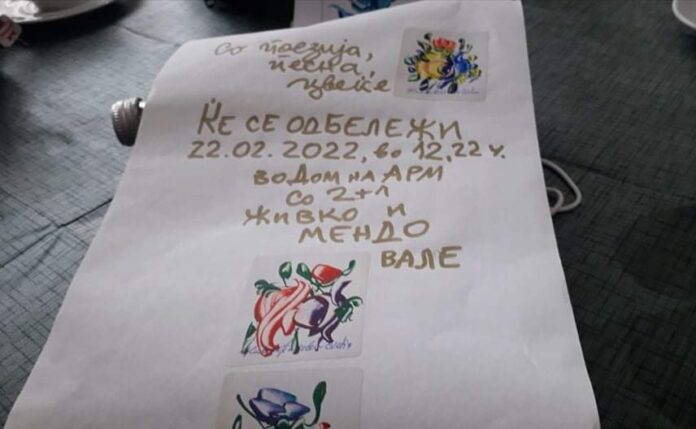 Со поезија,
песна,
цвеќе
ЌЕ СЕ ОДБЕЛЕЖИ
22.02.2022, во 12,22 ч.
ВО ДОМ НА АРМ
СО 2+1
ЖИВКО И
МЕНДО
ВАЛЕ